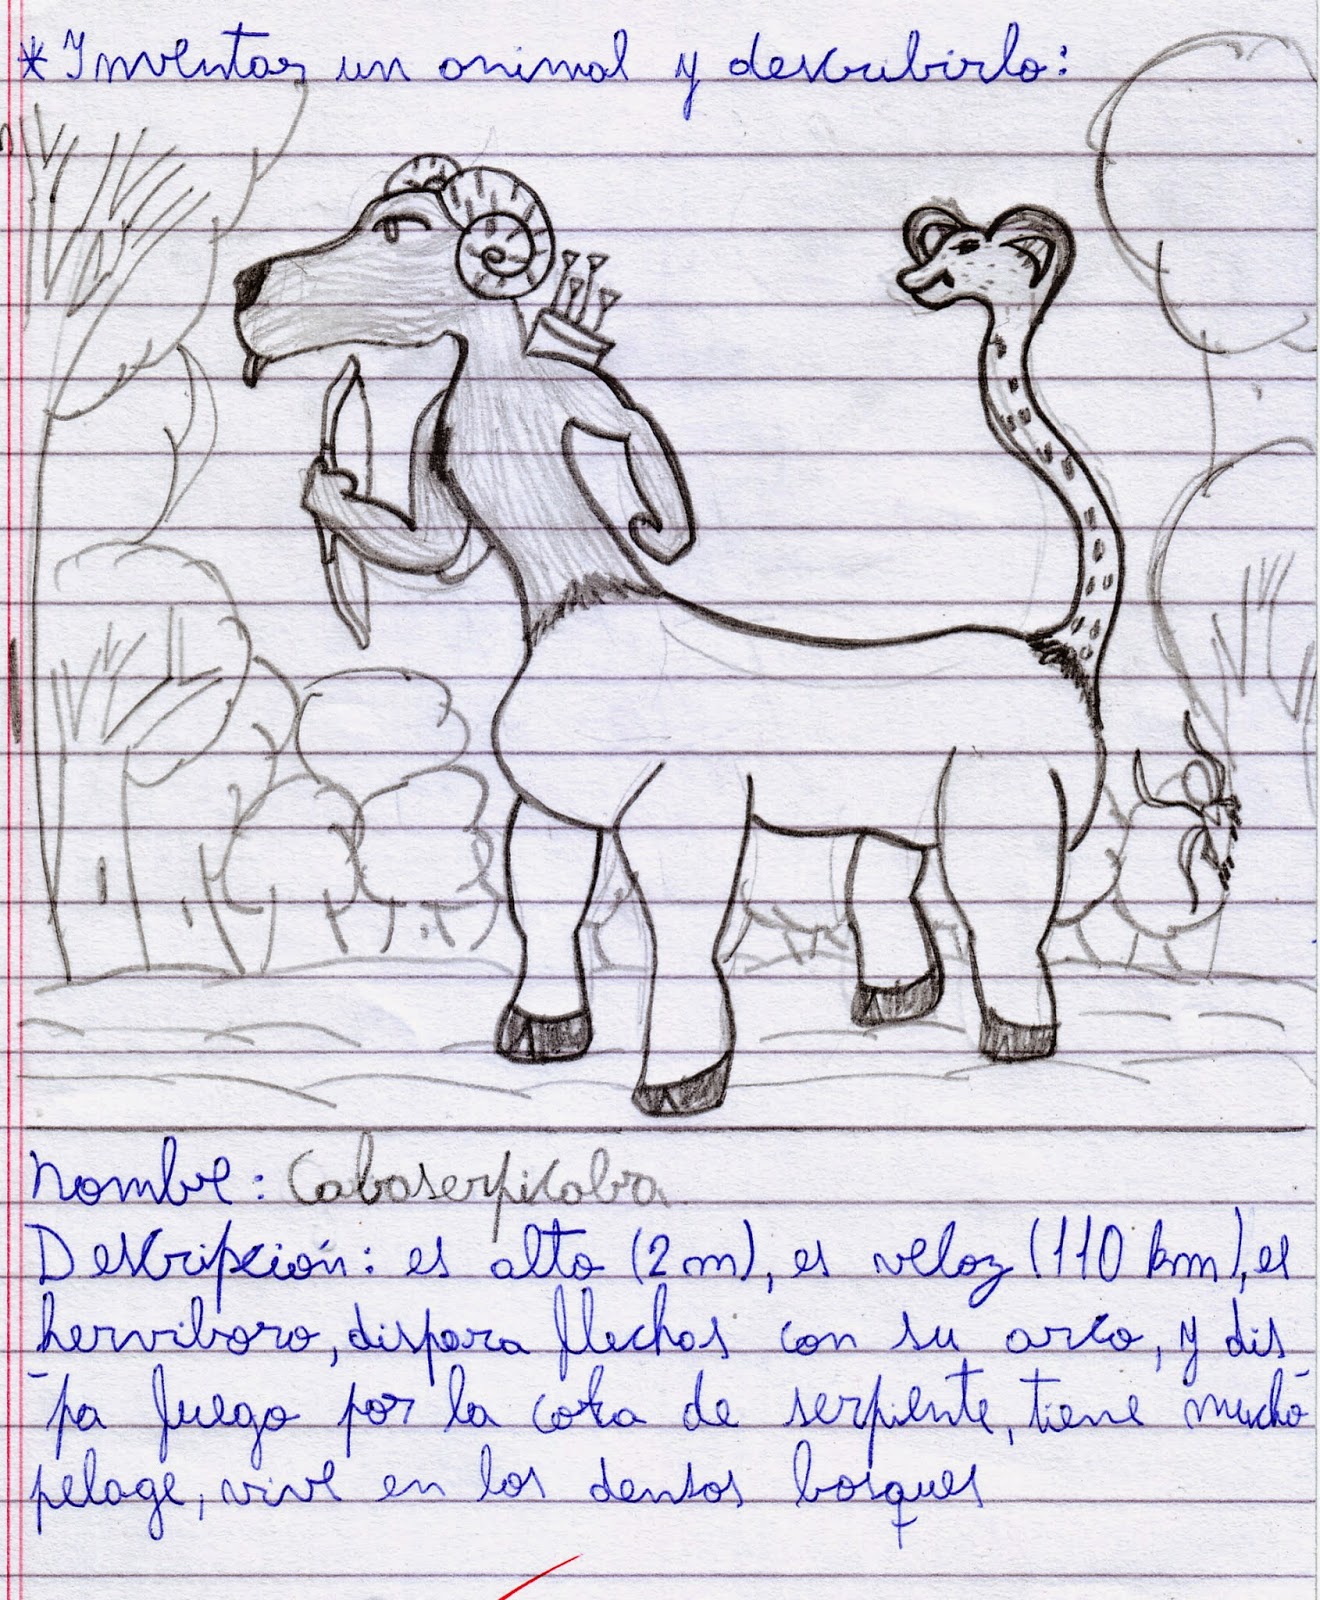 * Inventar un animal y descrubirlo:
Nombre: Caboserpicabra
Descripción: es alto (2 m), es veloz (110 km), es
herviboro, dispara flechas con su arco, y dis
-pa fuego por la cola de serpiente, tiene mucho
pelage, vive en los densos bosques